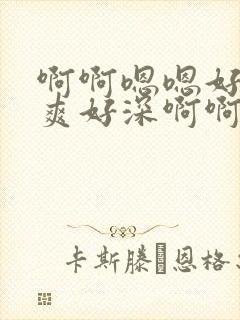 啊啊嗯嗯好
爽好深啊啊
卡斯滕·恩格